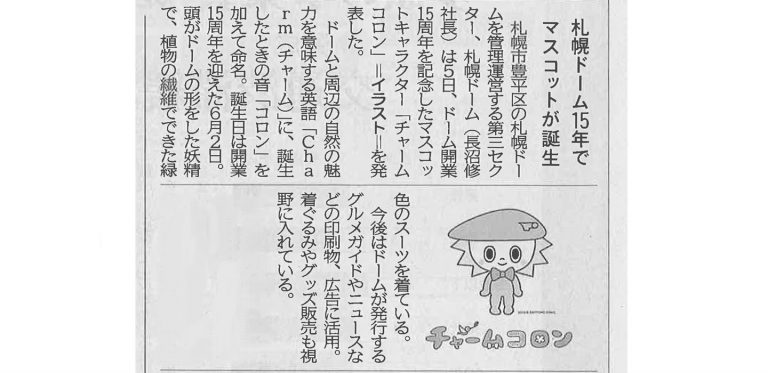 札幌ドーム15年で
マスコットが誕生
　札幌市豊平区の札幌ドー
ムを管理運営する第三セク
ター、札幌ドーム（長沼修
社長）は5日、ドーム開業
15周年を記念したマスコッ
トキャラクター「チャーム
コロン」＝イラスト＝を発
表した。
　ドームと周辺の自然の魅
力を意味する英語「Cha
rm（チャーム）」に、誕生
したときの音「コロン」を
加えて命名。誕生日は開業
15周年を迎えた6月2日。
頭がドームの形をした妖精
で、植物の繊維でできた緑
色のスーツを着ている。
　今後はドームが発行する
グルメガイドやニュースな
どの印刷物、広告に活用。
着ぐるみやグッズ販売も視
野に入れている。
チャームコロン